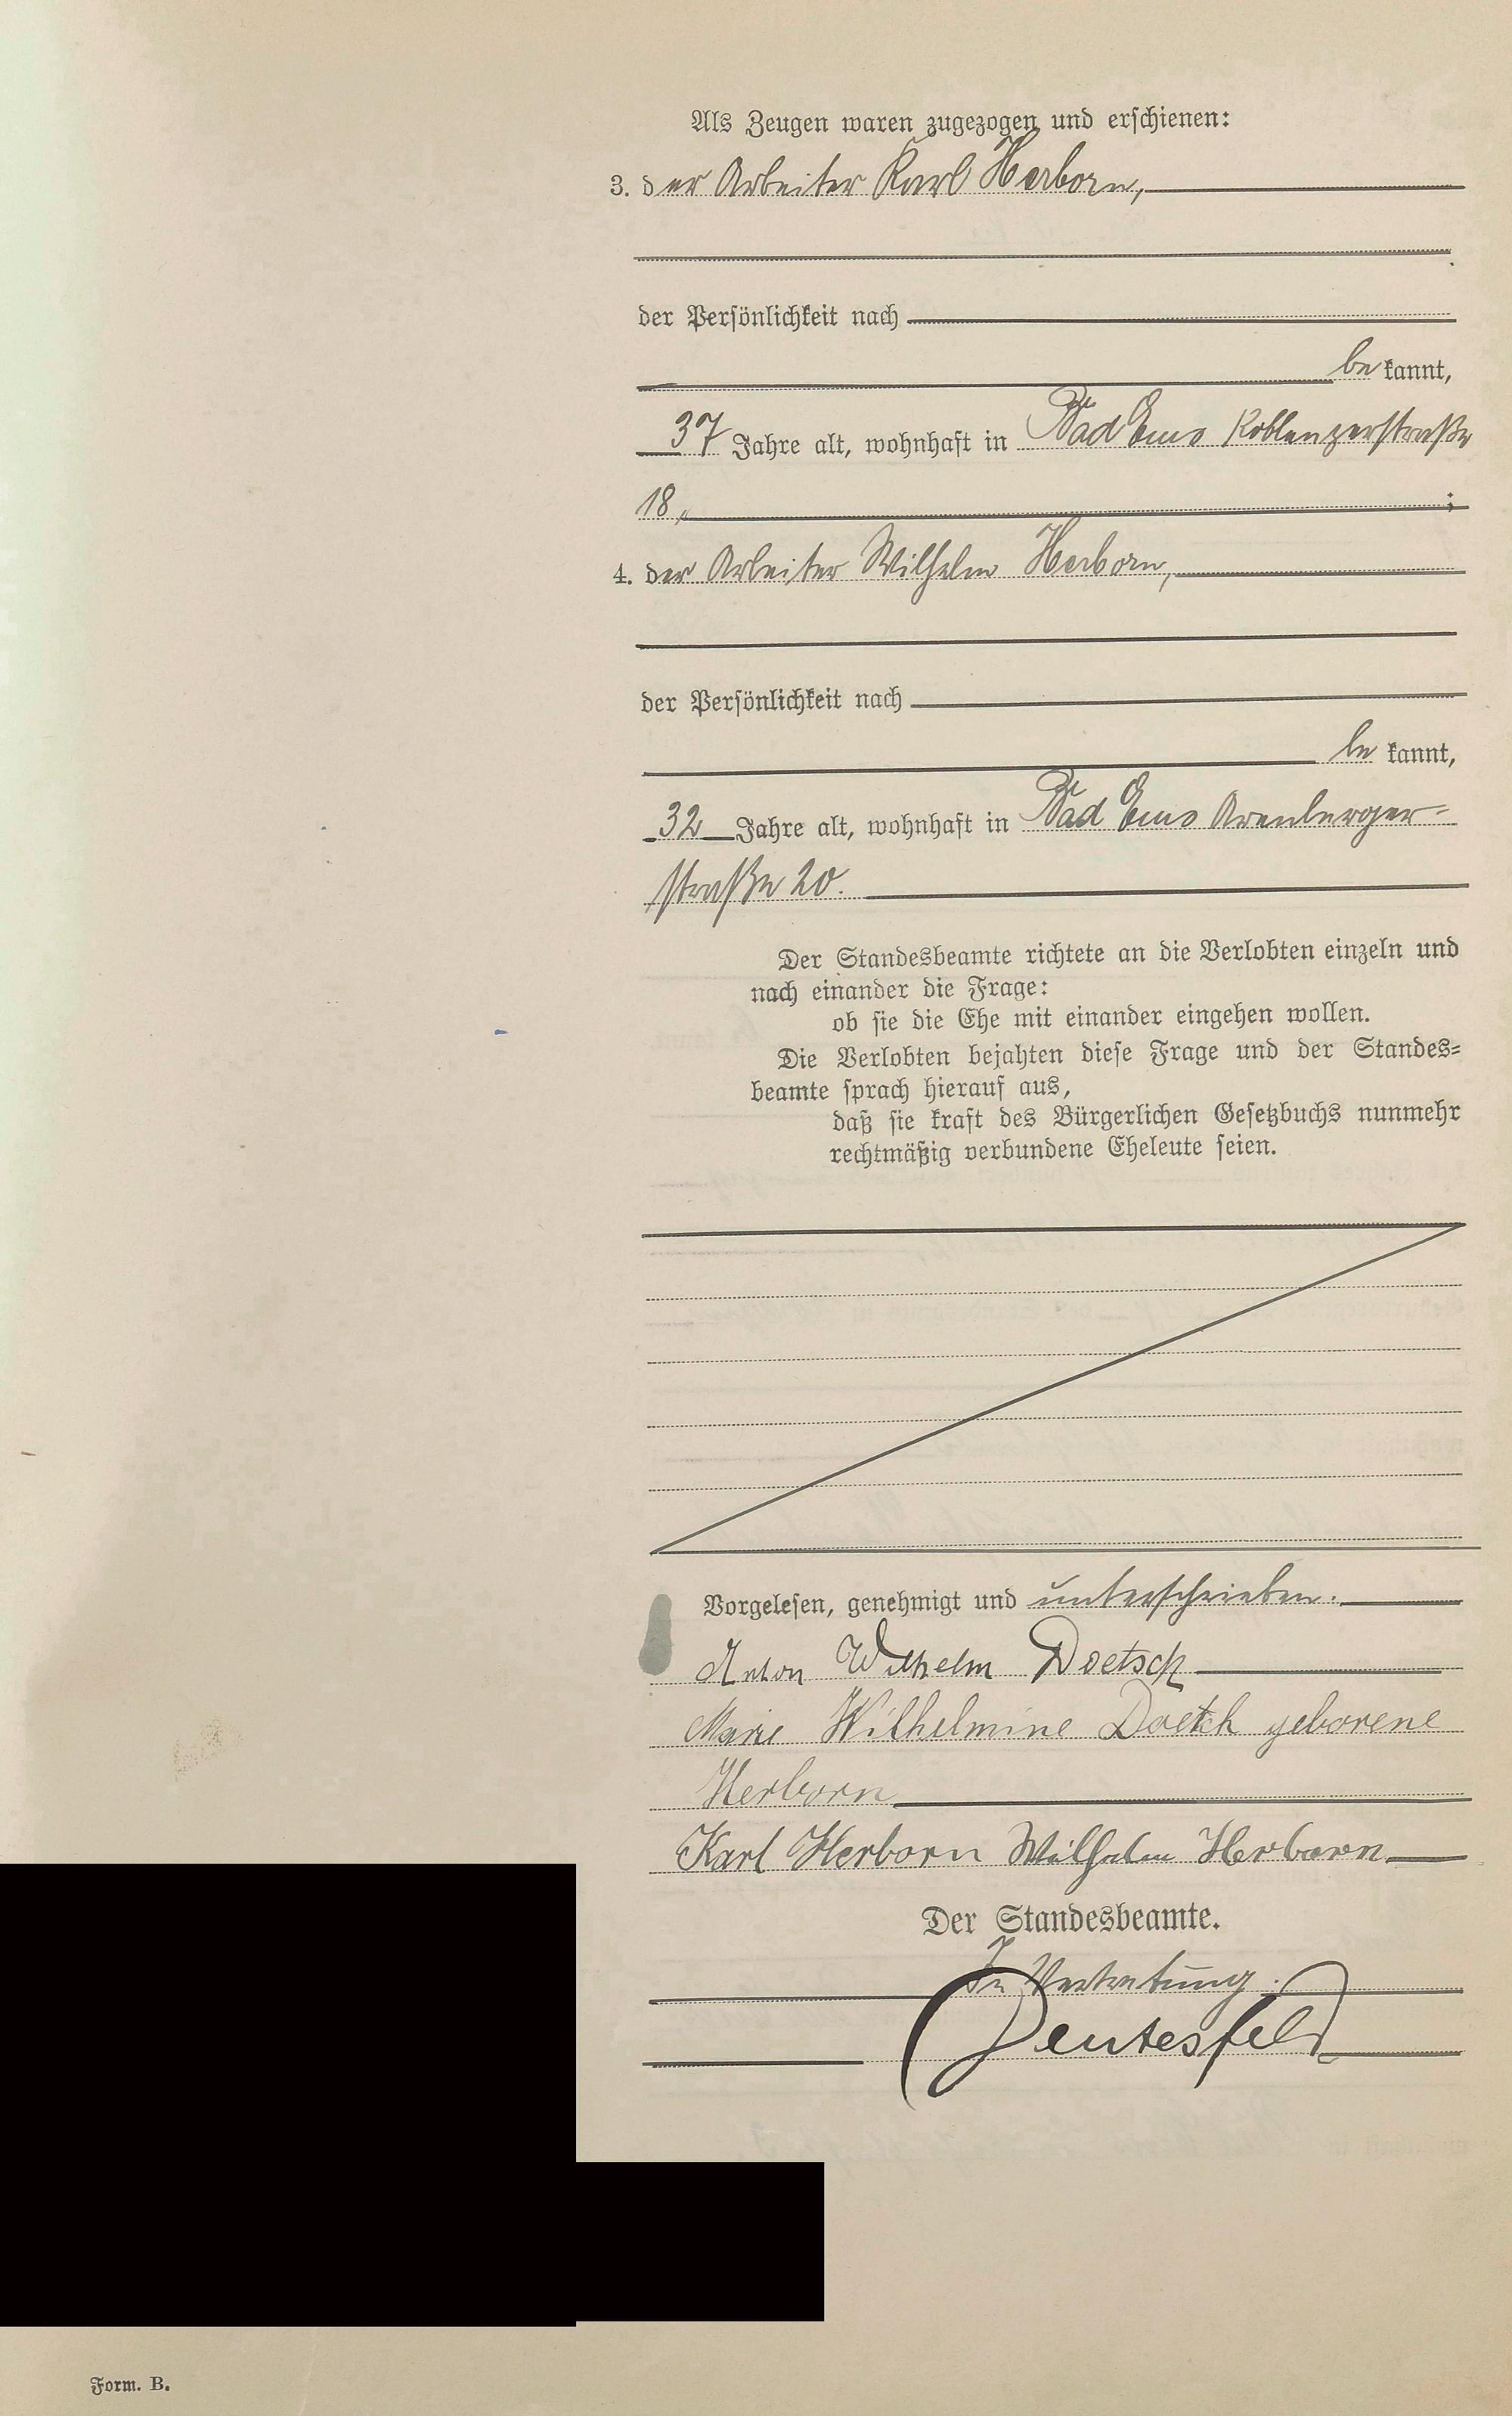 Als Zeugen waren zugezogen und erschienen:
3. der Arbeiter Karl Herborn,
der Persönlichkeit nach
bekannt,
37 Jahre alt, wohnhaft in Bad Ems Koblenzerstraße
18, ;
4. der Arbeiter Wilhelm Herborn,
der Persönlichkeit nach
bekannt,
32 Jahre alt, wohnhaft in Bad Ems Arenberger-
straße 20.
Der Standesbeamte richtete an die Verlobten einzeln und
nach einander die Frage:
ob sie die Ehe mit einander eingehen wollen.
Die Verlobten bejahten diese Frage und der Standes-
beamte sprach hierauf aus,
daß sie kraft des Bürgerlichen Gesetzbuchs nunmehr
rechtmäßig verbundene Eheleute seien.
Vorgelesen, genehmigt und unterschrieben.
Anton Wilhelm Doetsch
Marie Wilhelmine Doetsch geborene
Herborn
Karl Herborn Wilhelm Herborn
Der Standesbeamte.
In Vertretung.
Deutesfeld
Form. B.